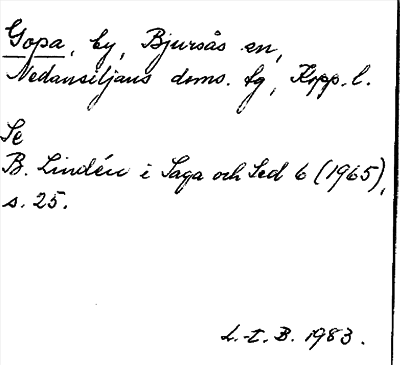 Gopa, by, Bjursås sn,
Nedansiljans doms. tg, Kopp. l.
Se
B. Lindén i Saga och Sed 6 (1965),
s. 25.
L.-t. B. 1983.